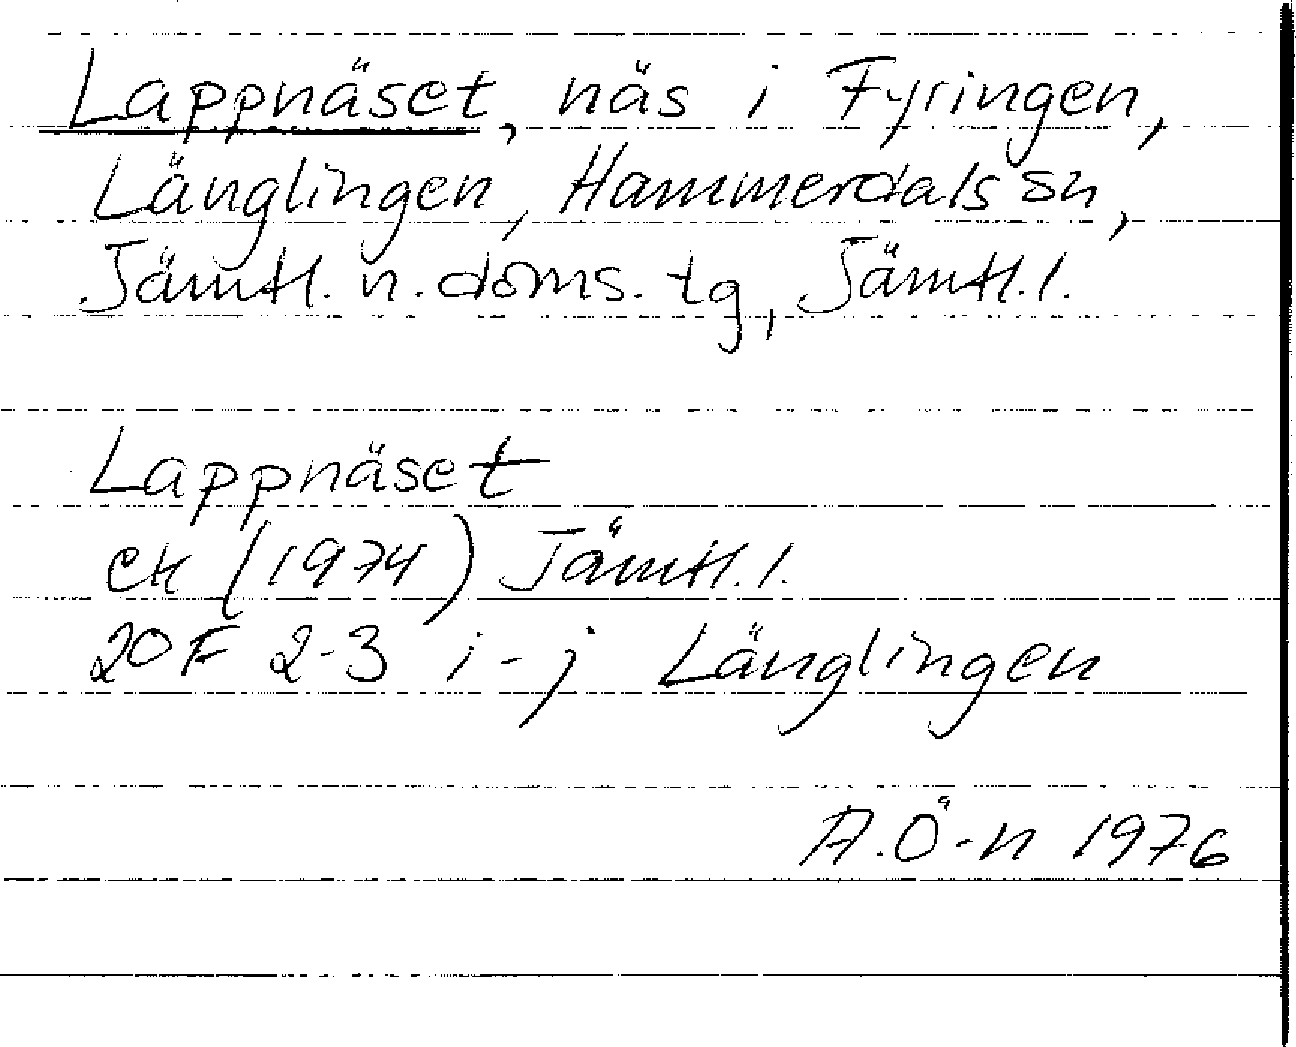 Lappnäset, näs i Fyringen,
Länglingen, Hammerdals sn,
Jämtl. n. doms. tg, Jämtl. l.
Lappnäset
ek (1974) Jämtl. l.
20 F 2-3 i-j Länglingen
A. Ö-n 1976